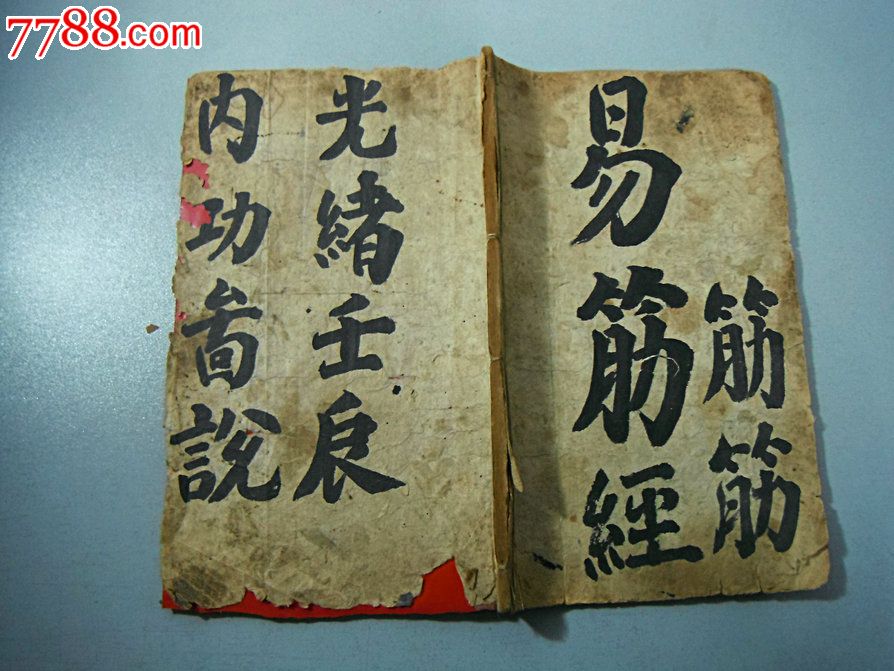 7788.com
筋筋
易筋經
光緒壬辰
内功啚說